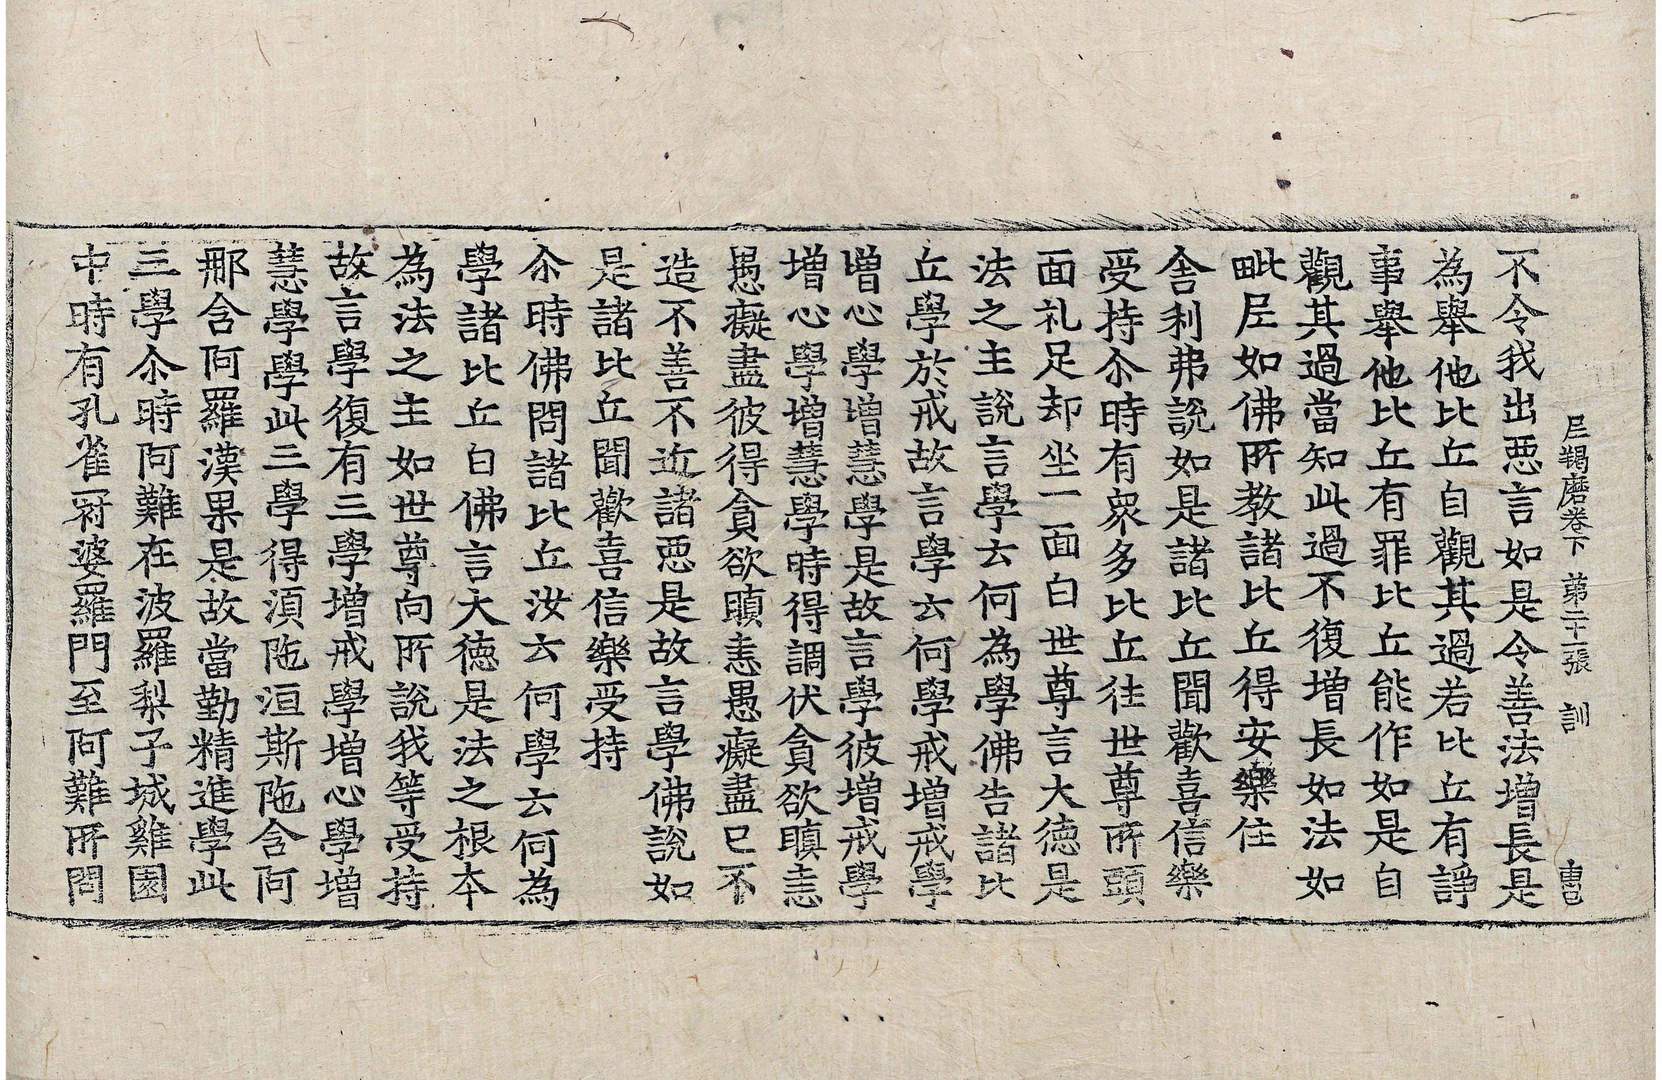 尼羯磨卷下 第二十二張 訓
不令我出惡言如是令善法增長是
為舉他比丘自觀其過若比丘有諍
事舉他比丘有罪比丘能作如是自
觀其過當知此過不復增長如法如
毗尼如佛所教諸比丘得安樂住
舍利弗說如是諸比丘聞歡喜信樂
受持尒時有衆多比丘往世尊所頭
面礼足却坐一面白世尊言大德是
法之主說言學云何為學佛告諸比
丘學於戒故言學云何學戒增戒學
增心學增慧學是故言學彼增戒學
增心學增慧學時得調伏貪欲瞋恚
愚癡盡彼得貪欲瞋恚愚癡盡已不
造不善不近諸惡是故言學佛說如
是諸比丘聞歡喜信樂受持
尒時佛問諸比丘汝云何學云何為
學諸比丘白佛言大德是法之根本
為法之主如世尊向所說我等受持
故言學復有三學增戒學增心學增
慧學學此三學得湏陁洹斯陁含阿
那含阿羅漢果是故當勤精進學此
三學尒時阿難在波羅梨子城雞園
中時有孔雀冠婆羅門至阿難所問